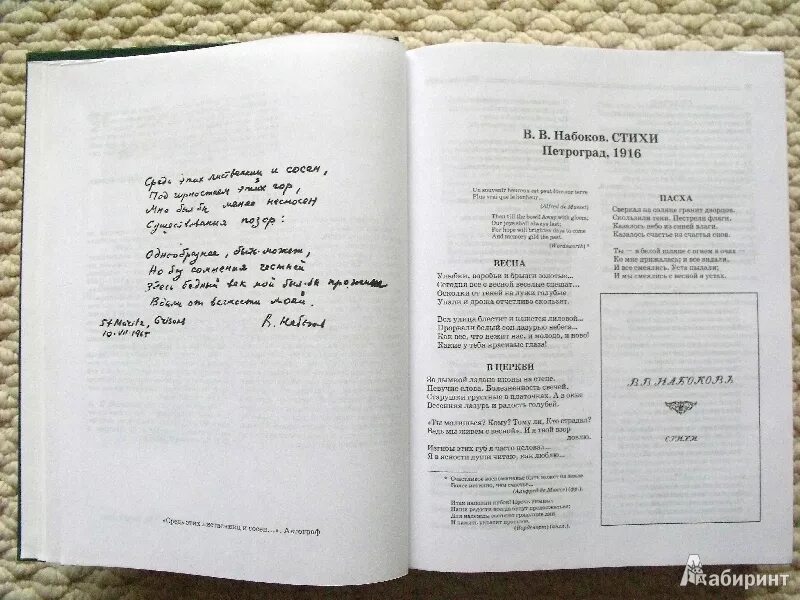 Средь этих лиственниц и сосен,
Под горностаем этих гор,
Мне был бы менее несносен
Существования позор:
Однообразнее, быть может,
Но без сомнения честней
Здесь бедный век мой был бы прожит
Вдали от вечности моей.
St Moritz, Grisons
10.VII.1965
В. Набоков
«Средь этих лиственниц и сосен...». Автограф
В. В. Набоков. СТИХИ
Петроград, 1916
Un souvenir heureux est peut-être sur terre
Plus vrai que le bonheur...
(Alfred de Musset)
Then fill the bowl! Away with gloom,
Our joys shall always last:
For hope will brighten days to come
And memory gild the past.
ВЕСНА
Улыбки, воробьи и брызги золотые...
Сегодня все с весной веселые спешат...
Осколки от теней на лужи голубые
Упали и дрожа отчетливо скользят.
Вся улица блестит и кажется лиловой...
Прорвали белый сон лазурью небеса...
Как все, что нежит нас, и молодо, и ново!
Какие у тебя красивые глаза!
В ЦЕРКВИ
За дымкой ладана иконы на стене.
Певучие слова. Болезненность свечей.
Старушки грустные в платочках. А в окне
Весенняя лазурь и радость голубей.
«Ты молишься? Кому? Тому ли, Кто страдал?
Ведь мы живем с весной». И я твой взор
ловлю.
Изгибы этих губ я часто целовал...
Я в ясности души читаю, как люблю...
* Счастливое воспоминание быть может на земле
Более истинно, чем счастье...
(Альфред де Мюссе) (фр.).
Итак наполни кубок! Прочь унынье!
Наши радости всегда будут продолжаться:
Для надежды осветит грядущие дни
И память украсит прошлое.
ПАСХА
Сверкал на солнце гранит дворцов.
Скользили тени. Пестрели флаги.
Казалось небо из синей влаги.
Казалось счастье из счастья снов.
Ты — в белой шляпе с огнем в очах
Ко мне прижалась; и все видали.
И все смеялись. Уста пылали;
И мы смеялись с весной в устах.
В.В. НАБОКОВЪ
СТИХИ
Лабиринт